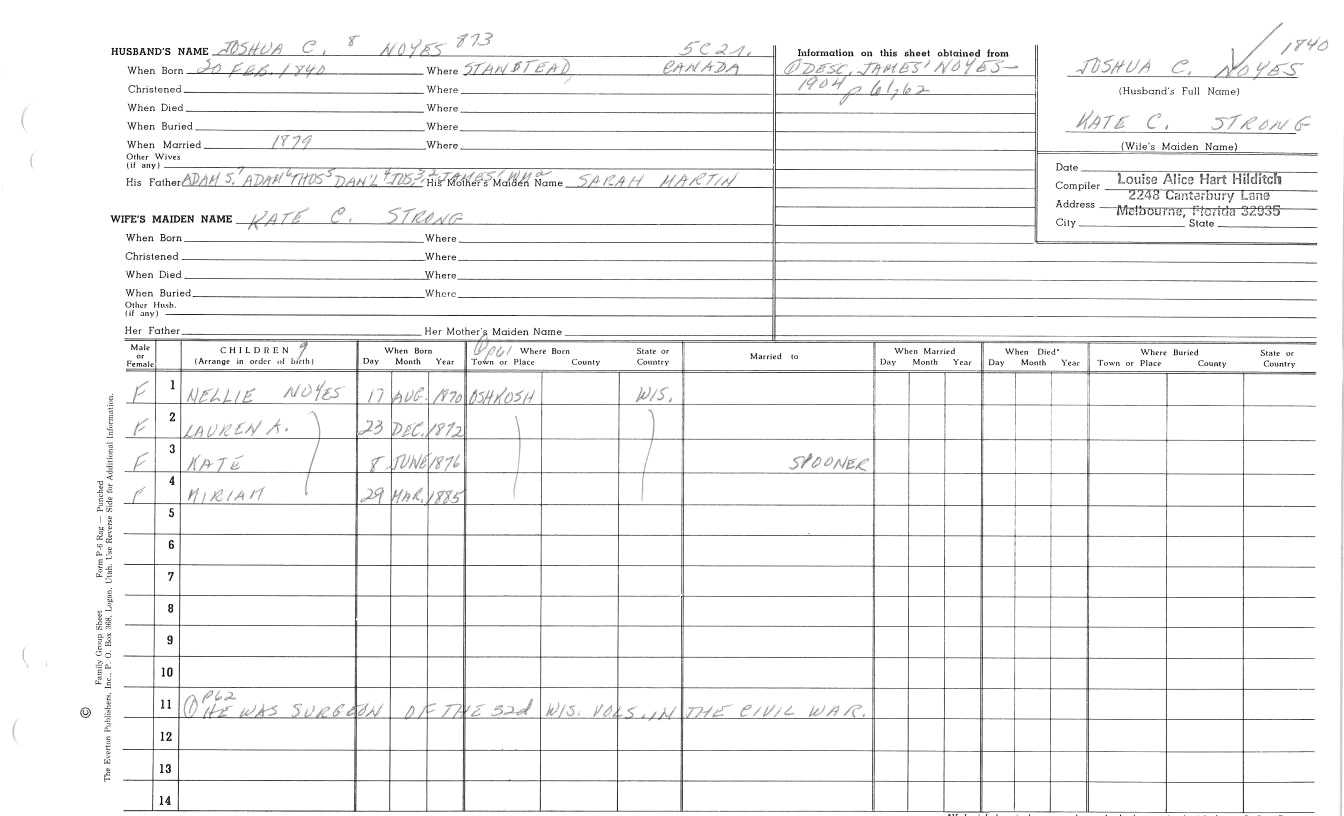 1840
HUSBAND'S NAME JOSHUA C. 8 NOYES 873 5C21.
When Born 20 FEB. 1840 Where STANSTEAD, CANADA
Christened Where
When Died Where
When Buried Where
When Married 1879 Where
Other Wives
(if any)
His Father ADAM S.7 ADAM6 THOS5 DAN'L4 JOS3, 2 JAMES' WM2 His Mother's Maiden Name SARAH MARTIN
Information on this sheet obtained from
① DESC. JAMES' NOYES—
1904 p 61,62
JOSHUA C. NOYES
(Husband's Full Name)
KATE C. STRONG
(Wife's Maiden Name)
Date
Compiler Louise Alice Hart Hilditch
Address 2248 Canterbury Lane
Melbourne, Florida 32935
City State
WIFE'S MAIDEN NAME KATE C. STRONG
When Born Where
Christened Where
When Died Where
When Buried Where
Other Husb.
(if any)
Her Father Her Mother's Maiden Name
Male or Female CHILDREN 9 (Arrange in order of birth) When Born Day Month Year ① p61 Where Born Town or Place County State or Country Married to When Married Day Month Year When Died* Day Month Year Where Buried Town or Place County State or Country
F 1 NELLIE NOYES 17 AUG. 1870 OSHKOSH WIS.
F 2 LAUREN A. 23 DEC. 1872
F 3 KATE 8 JUNE 1876 SPOONER
F 4 MIRIAM 29 MAR. 1885
5
6
7
8
9
10
11 ① P62 HE WAS SURGEON OF THE 32d WIS. VOLS. IN THE CIVIL WAR.
12
13
14
© The Everton Publishers, Inc., P. O. Box 368, Logan, Utah. Use Reverse Side for Additional Information.
Family Group Sheet Form P-6 Rag — Punched